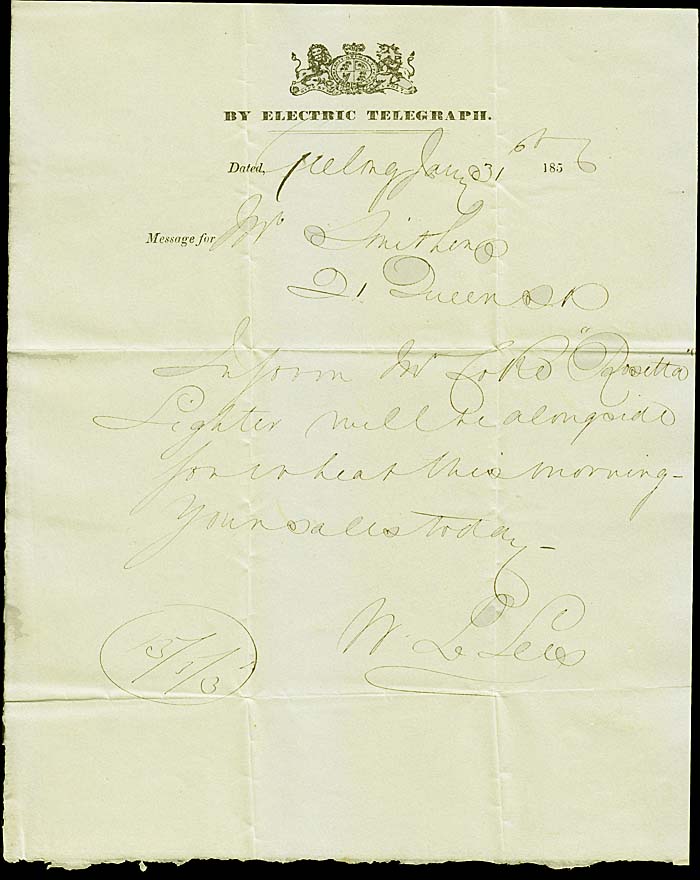 BY ELECTRIC TELEGRAPH.
Dated, Geelong Jany 31st 1856
Message for Mr Smithers
21 Queen St
Inform Mr "Rosetta"
Lighter will be alongside
for wheat this morning -
Your sales today -
W. L Lees
15/1/3